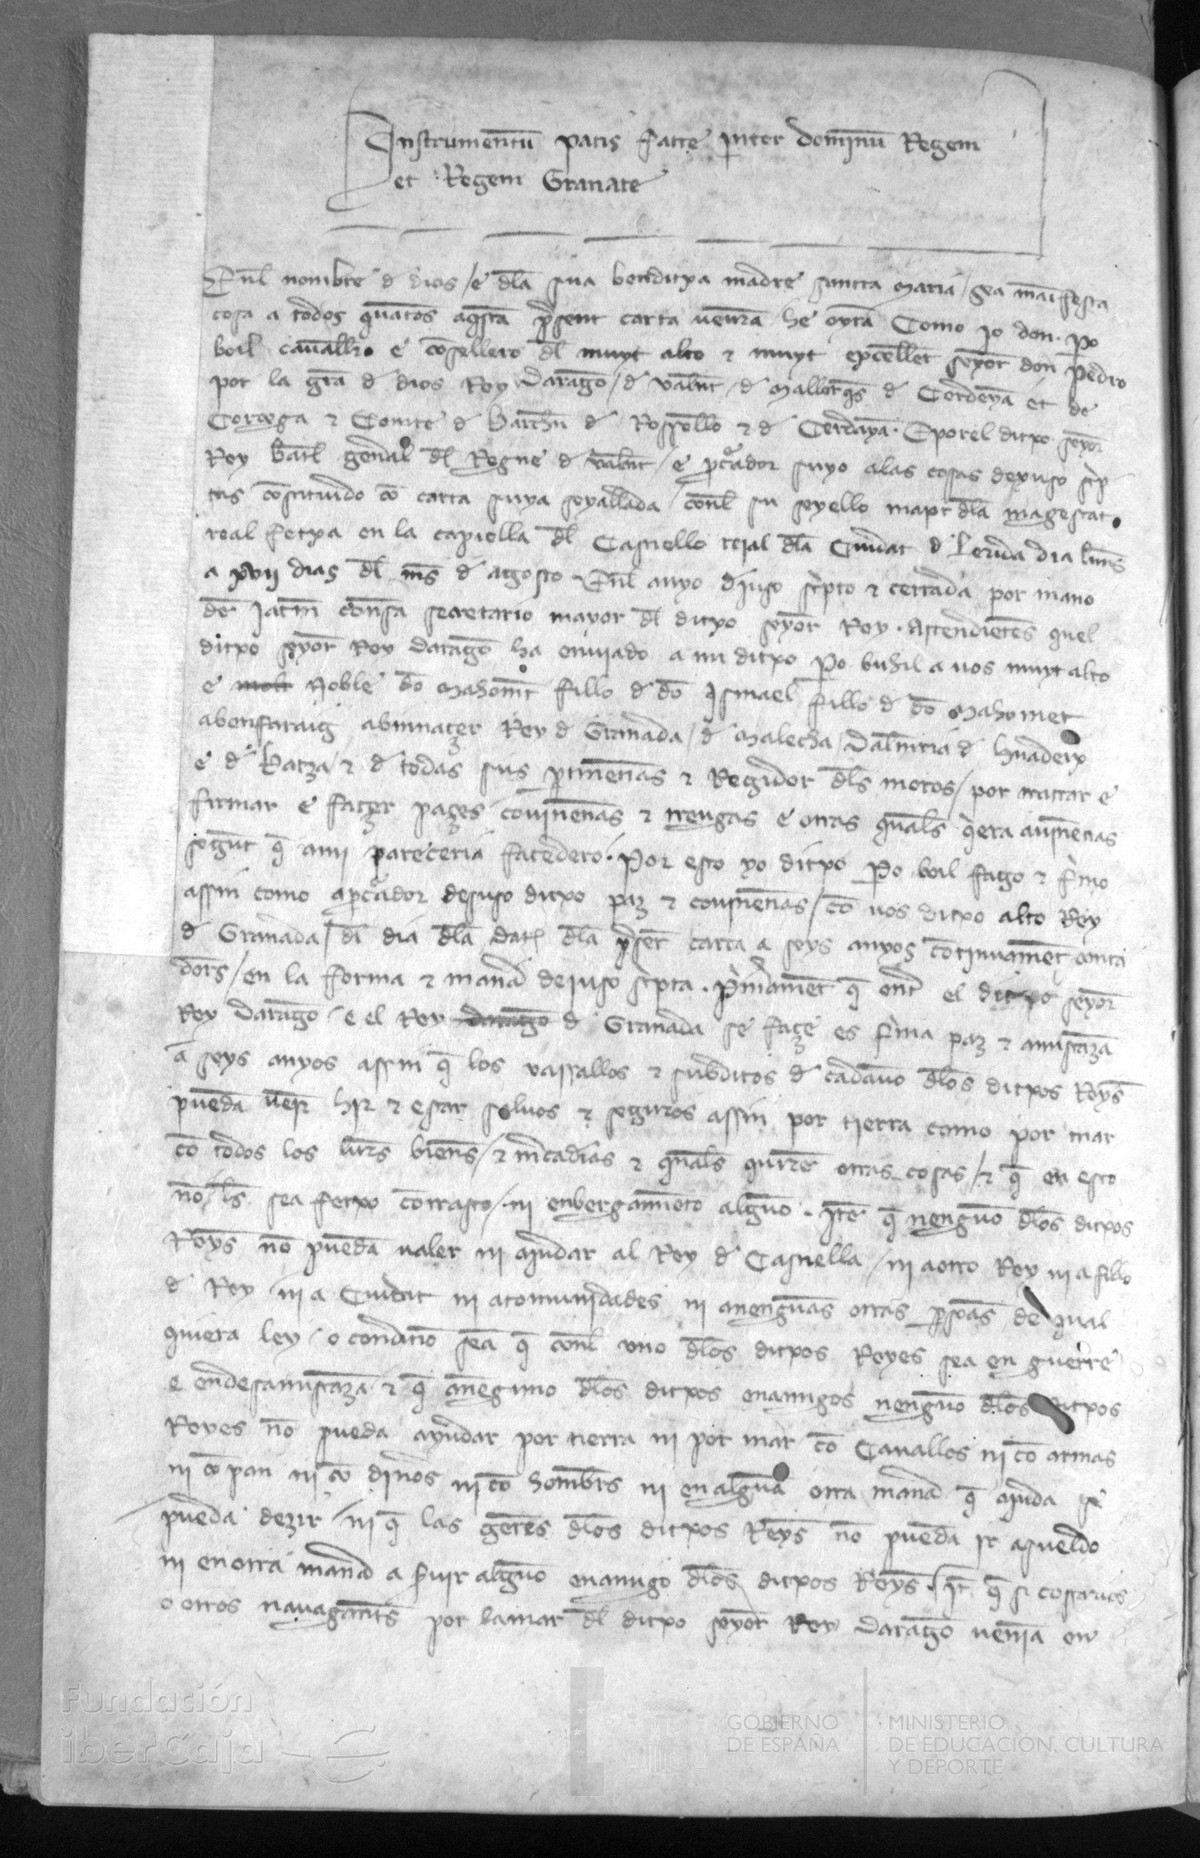 Instrumentū pacis facte inter dominū Regem
et Regem Granate
Enl nombre d dios / e dla sua benditxa madre sancta maria / sea manifesta
cosa a todos quātos aqsta psent carta ueurā he oyrā Como io don Po
boil cauallo e cosellero dl muyt alto z muyt excellēt senyor don Pedro
por la grā d dios Rey Darago / d valēt / d mallorqs d Cerdenyā et de
Corcega z Comte d Barchn d Rossello z d Cerdanya. E por el ditxo senyor
Rey Batl genāl dl Regne d valēt / e pcador suyo a las cosas dexuso scp
tas cōstituido cō carta suya seyallada / conl su seyello mayr dla magestat
real fetxa en la capiella dl Castiello reyal dla Ciudat d Lerida dia luns
a xvii dias dl ms d agosto Enl anyo djuso scpto z cerrada por mano
de Jacm consa secretario mayor dl ditxo senyor Rey. Attendietes quel
ditxo senyor Rey darago ha enuiado a mi ditxo Po buhil a uos muyt alto
e molt Noble do mahomt fillo d do Ismael fillo d do mahomet
abenfaraig abinnaçer Rey d Granada / d malecha / dalmiria d huadeix
e d batza / z d todas sus ptinencias z Regidor dls moros / por tractar e
firmar e fatzer pazes couinencias z treugas e otras quals qera auinencias
segūt q a mi pareceria facedero. Por esto yo ditxo Po boil fago z fmo
assin como apcador desuso ditxo paz z couinencias / cō uos ditxo alto Rey
d Granada / dl dia dla dat dla psēt carta a seys anyos continuamēt conta
dors / en la forma z manā dejuso scpta. Pimamēt q ent el ditxo senyor
Rey darago / e el Rey darago d Granada se façe es fima paz z amistaza
a seys anyos assin q los vassallos z subditos d cadauno dlos ditxos Reys
puedā uenir hir z estar saluos z seguros assin por tierra como por mar
cō todos los lurs biens / z mcadias z quals quiere otras cosas / z q en esto
no ls sea fetxo contrasto / ni enbergamēto alguno. Ite q nenguno dlos ditxos
Reys no pueda ualer ni ajudar al Rey d Castiella / ni a otro Rey ni a fillo
d Rey / ni a Ciudat ni a comunidades ni a nenguas otras psonas de qual
quiera ley / o condicio sea q conl uno dlos ditxos Reyes sea en guerre
e en desamistaza z q a neguno dlos ditxos enamigos nenguno dlos ditxos
Reyes no pueda ayudar por tierra ni por mar cō Cauallos ni cō armas
ni cō pan ni cō dineros ni cō hombrs ni en alguna otra manā q ajuda se
pueda dezir / ni q las gētes dlos ditxos Reys no pueda ir a sueldo
ni en otra manā a suir alguno enamigo dlos ditxos Reys. It q si cossarios
o otros nauegants por la mar dl ditxo senyor Rey darago uenian en
Fundación
iberCaja
GOBIERNO
DE ESPAÑA
MINISTERIO
DE EDUCACIÓN, CULTURA
Y DEPORTE